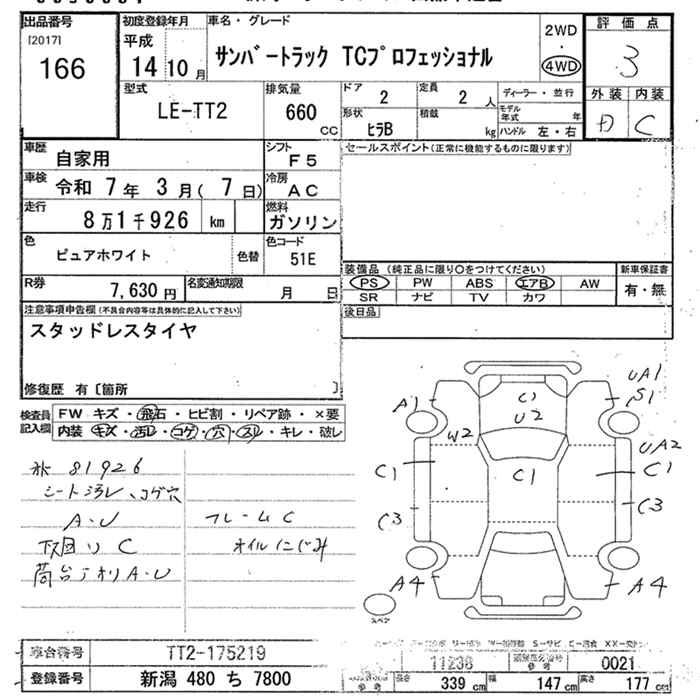 出品番号 初度登録年月 車名・グレード 評価点
[2017] 166
平成 14年10月
サンバートラック TCプロフェッショナル
2WD・4WD
3
型式 排気量 ドア 2 定員 2 人 ディーラー・並行 外装 内装
LE-TT2 660 cc 形状 ヒラB 積載 kg モデル年式 年 ハンドル 左・右
C
車歴 自家用 シフト F5 セールスポイント(正常に機能するものに限ります)
車検 令和 7年 3月( 7日) 冷房 AC
走行 8万1千926 km 燃料 ガソリン
色 ピュアホワイト 色替 色コード 51E
装備品 (純正品に限り○をつけてください) 新車保証書
R券 7,630円 名変通知期限 月 日
PS PW ABS エアB AW 有・無
SR ナビ TV カワ
注意事項申告欄(不具合内容等は具体的に記入して下さい) 後日品
スタッドレスタイヤ
修復歴 有〔箇所 〕
検査員記入欄 FW キズ・飛石・ヒビ割・リペア跡・×要
内装 キズ・汚レ・コゲ・穴・スレ・キレ・破レ
81926
シート汚レ、コゲ穴
A・U
フレームC
下廻りC
オイルにじみ
荷台アオリA・U
C1
U2
UA1
S1
A1
W2
UA2
C1
C1
C1
C3
C3
A4
A4
スペア
車台番号 TT2-175219
11238 0021
登録番号 新潟 480 ち 7800
長さ 339 cm 幅 147 cm 高さ 177 cm